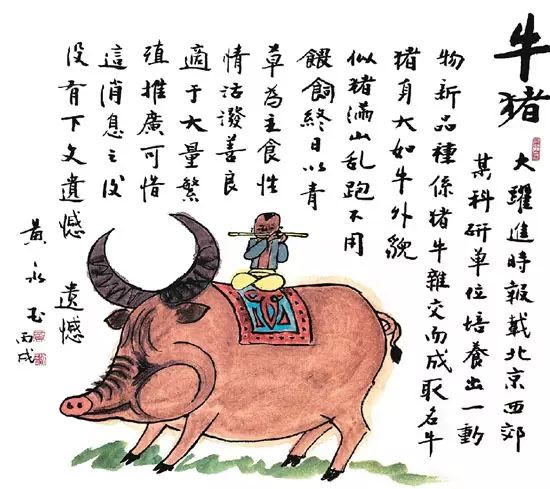 牛猪
大躍進時報載北京西郊
某科研单位培養出一動
物新品種係猪牛雜交而成取名牛
猪身大如牛外貌
似猪滿山乱跑不用
餵飼終日以青
草為主食性
情活潑善良
適于大量繁
殖推廣可惜
這消息之後
没有下文遺憾 遺憾
黄永玉 丙戌